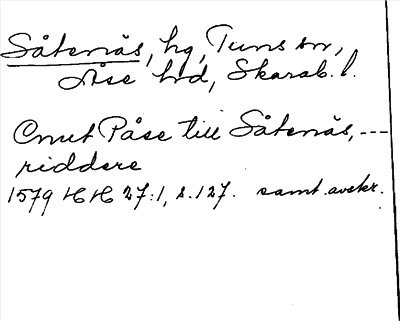 Såtenäs, hg, Tuns sn,
Åse hd, Skarab. l.
Cnut Påse till Såtenäs, ---
riddere
1579 HH 27:1, s. 127. samt. avskr.